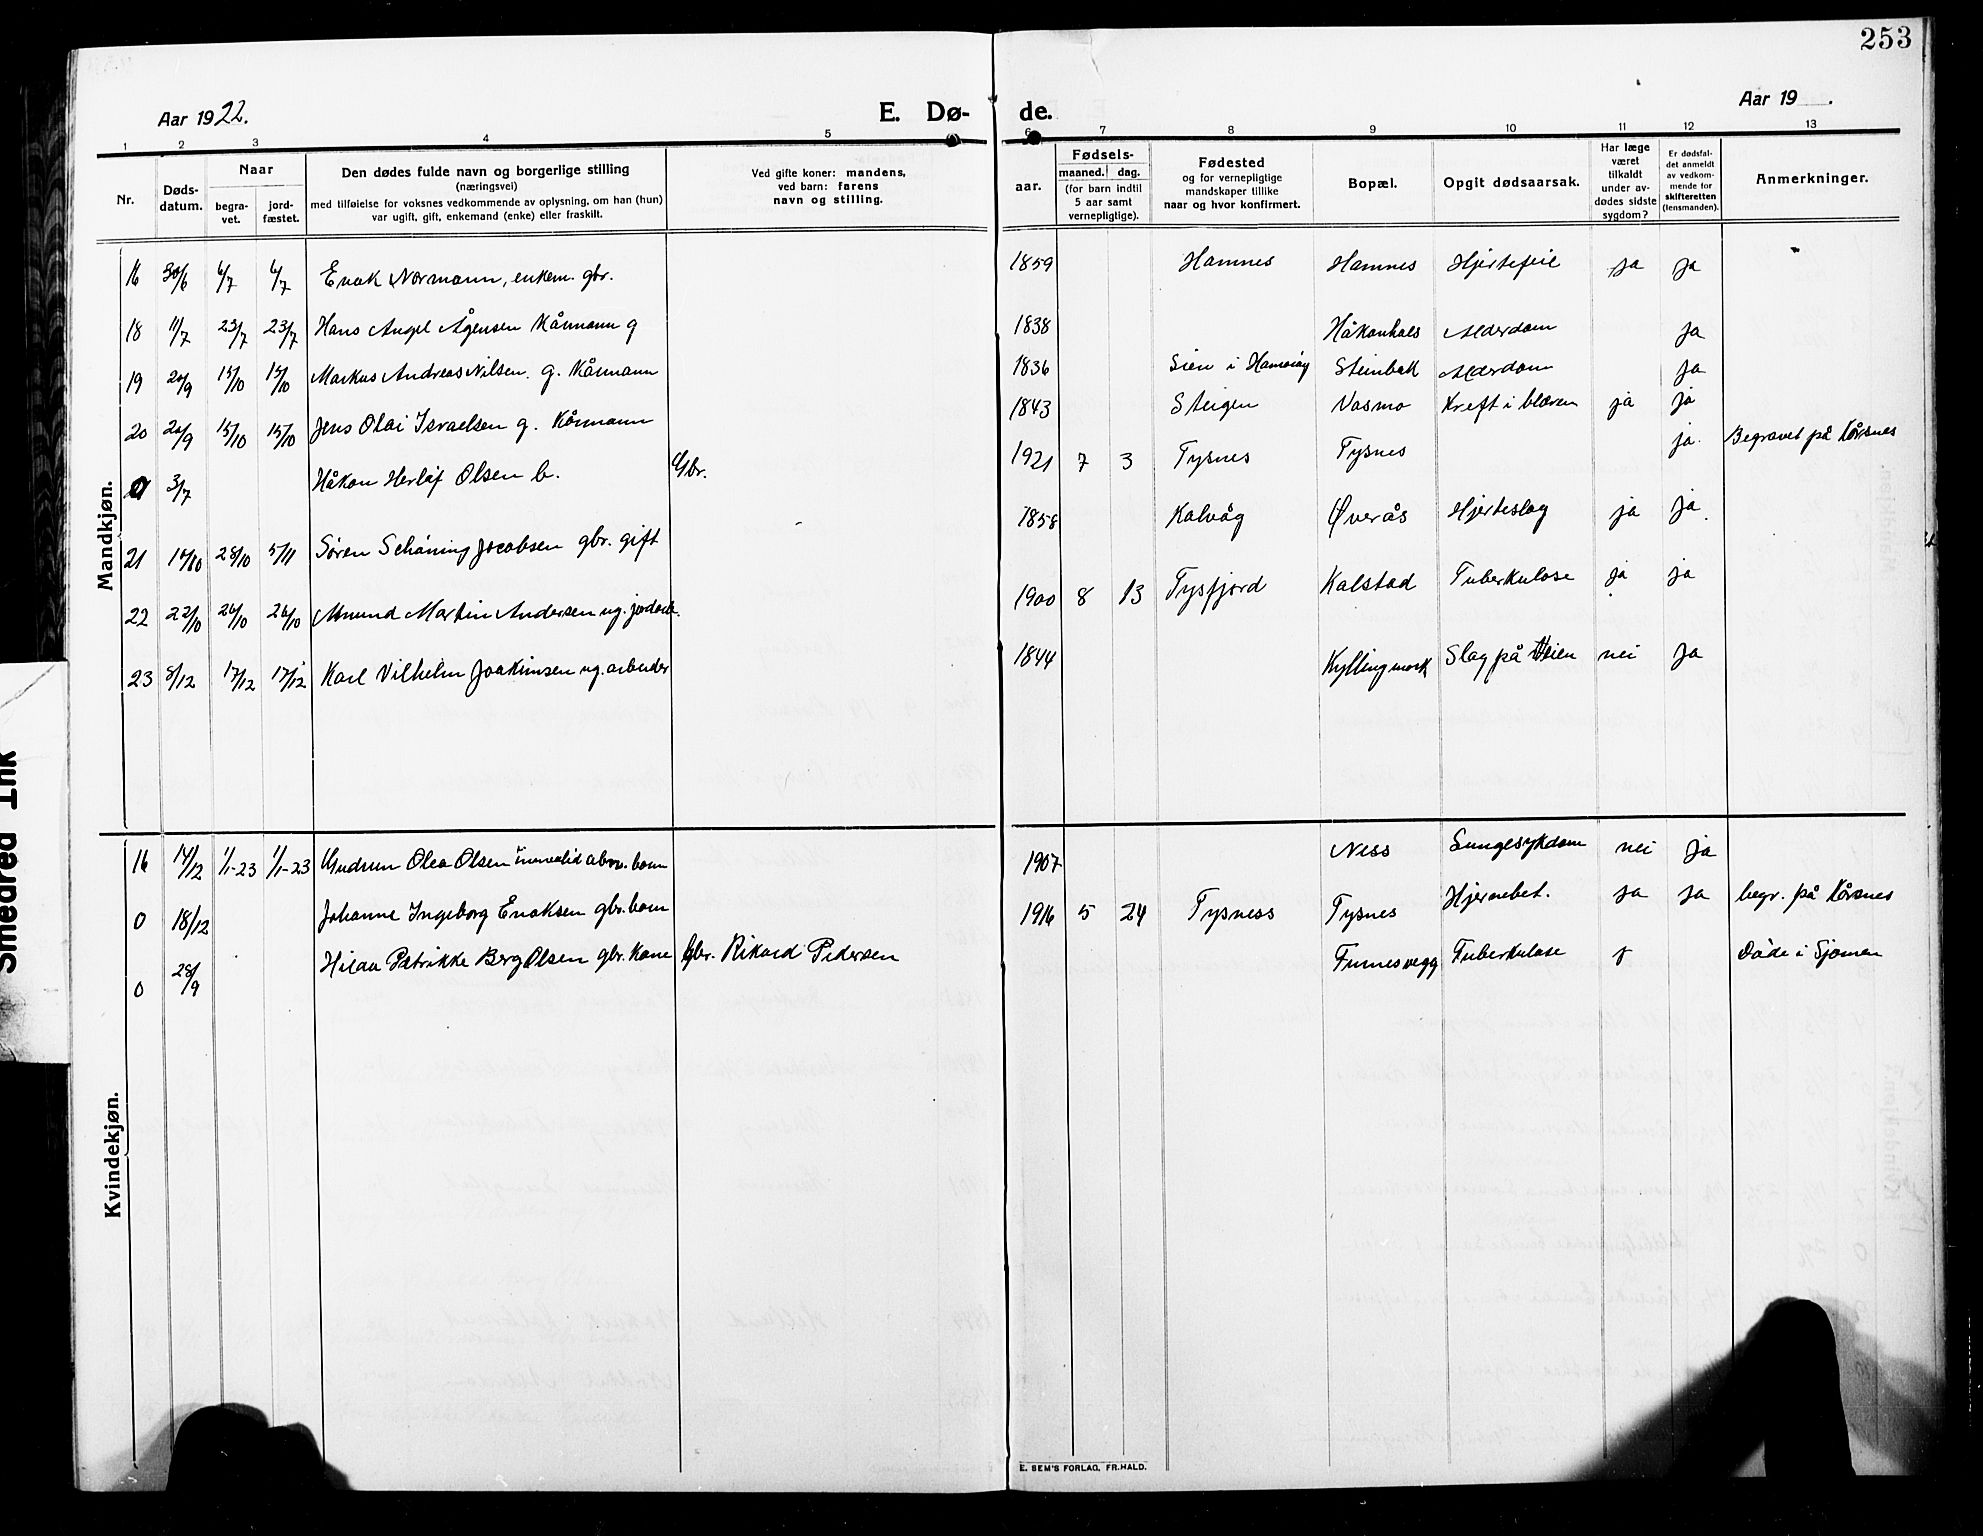 253
Aar 1922. E. Dø- de. Aar 19 .
1 2 3 4 5 6 7 8 9 10 11 12 13
Nr. Døds-datum. Naar begra-vet. jord-fæstet. Den dødes fulde navn og borgerlige stilling (næringsvei) med tilføielse for voksnes vedkommende av oplysning, om han (hun) var ugift, gift, enkemand (enke) eller fraskilt. Ved gifte koner: mandens, ved barn: farens navn og stilling. aar. Fødsels- maaned. dag. (for barn indtil 5 aar samt vernepligtige). Fødested og for vernepligtige mandskaper tillike naar og hvor konfirmert. Bopæl. Opgit dødsaarsak. Har læge været tilkaldt under av-dødes sidste sygdom? Er dødsfal-det anmeldt av vedkom-mende for skifteretten (lensmanden). Anmerkninger.
Mandkjøn.
16 30/6 6/7 6/7 Enok Normann, enkem. gbr. 1859 Hamnes Hamnes Hjertefeil ja ja
18 11/7 23/7 23/7 Hans Angel Ågensen Kårmann g 1838 Håkonhals Alderdom ja
19 20/9 15/10 15/10 Markus Andreas Nilsen. g. Kårmann 1836 i Hamarøy Steinbak Alderdom ja
20 20/9 15/10 15/10 Jens Olai Israelsen g. Kårmann 1843 Steigen Vasmo Kreft i blæren ja ja
0 3/7 Håkon Herlöf Olsen b. Gbr. 1921 7 3 Tysnes Tysnes ja. Begravet på Kårsnes
21 28/10 5/11 Søren Schöning Jocobsen gbr. gift 1858 Kalvåg Øverås Hjerteslag ja ja
22 22/10 26/10 26/10 Amund Martin Andersen ug. jordarb. 1900 8 13 Tysfjord Kalstad Tuberkulose ja ja
23 8/12 17/12 17/12 Karl Vilhelm Joakimsen ug. arbeider 1844 Kyllingmark Slag på Veien nei ja
Kvindekjøn.
16 14/12 1/1-23 1/1-23 Gudrun Olea Olsen barn 1907 Ness Lungesykdom nei ja
0 18/12 Johanne Ingeborg Enoksen gbr. barn 1916 5 24 Tysness Tysnes Hjernebet. ja ja begr. på Kårsnes
0 28/9 Hilda Petrikke Berg Olsen gbr. Kone Gbr. Rikard Pedersen Furnesvegg Tuberkulose j Døde i Sjomen
E. SEM'S FORLAG, FR.HALD.
Smedred Ink